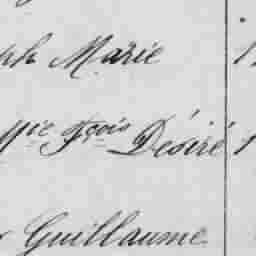 ph Marie 1
Mie Fçois Désiré 1
Guillaume